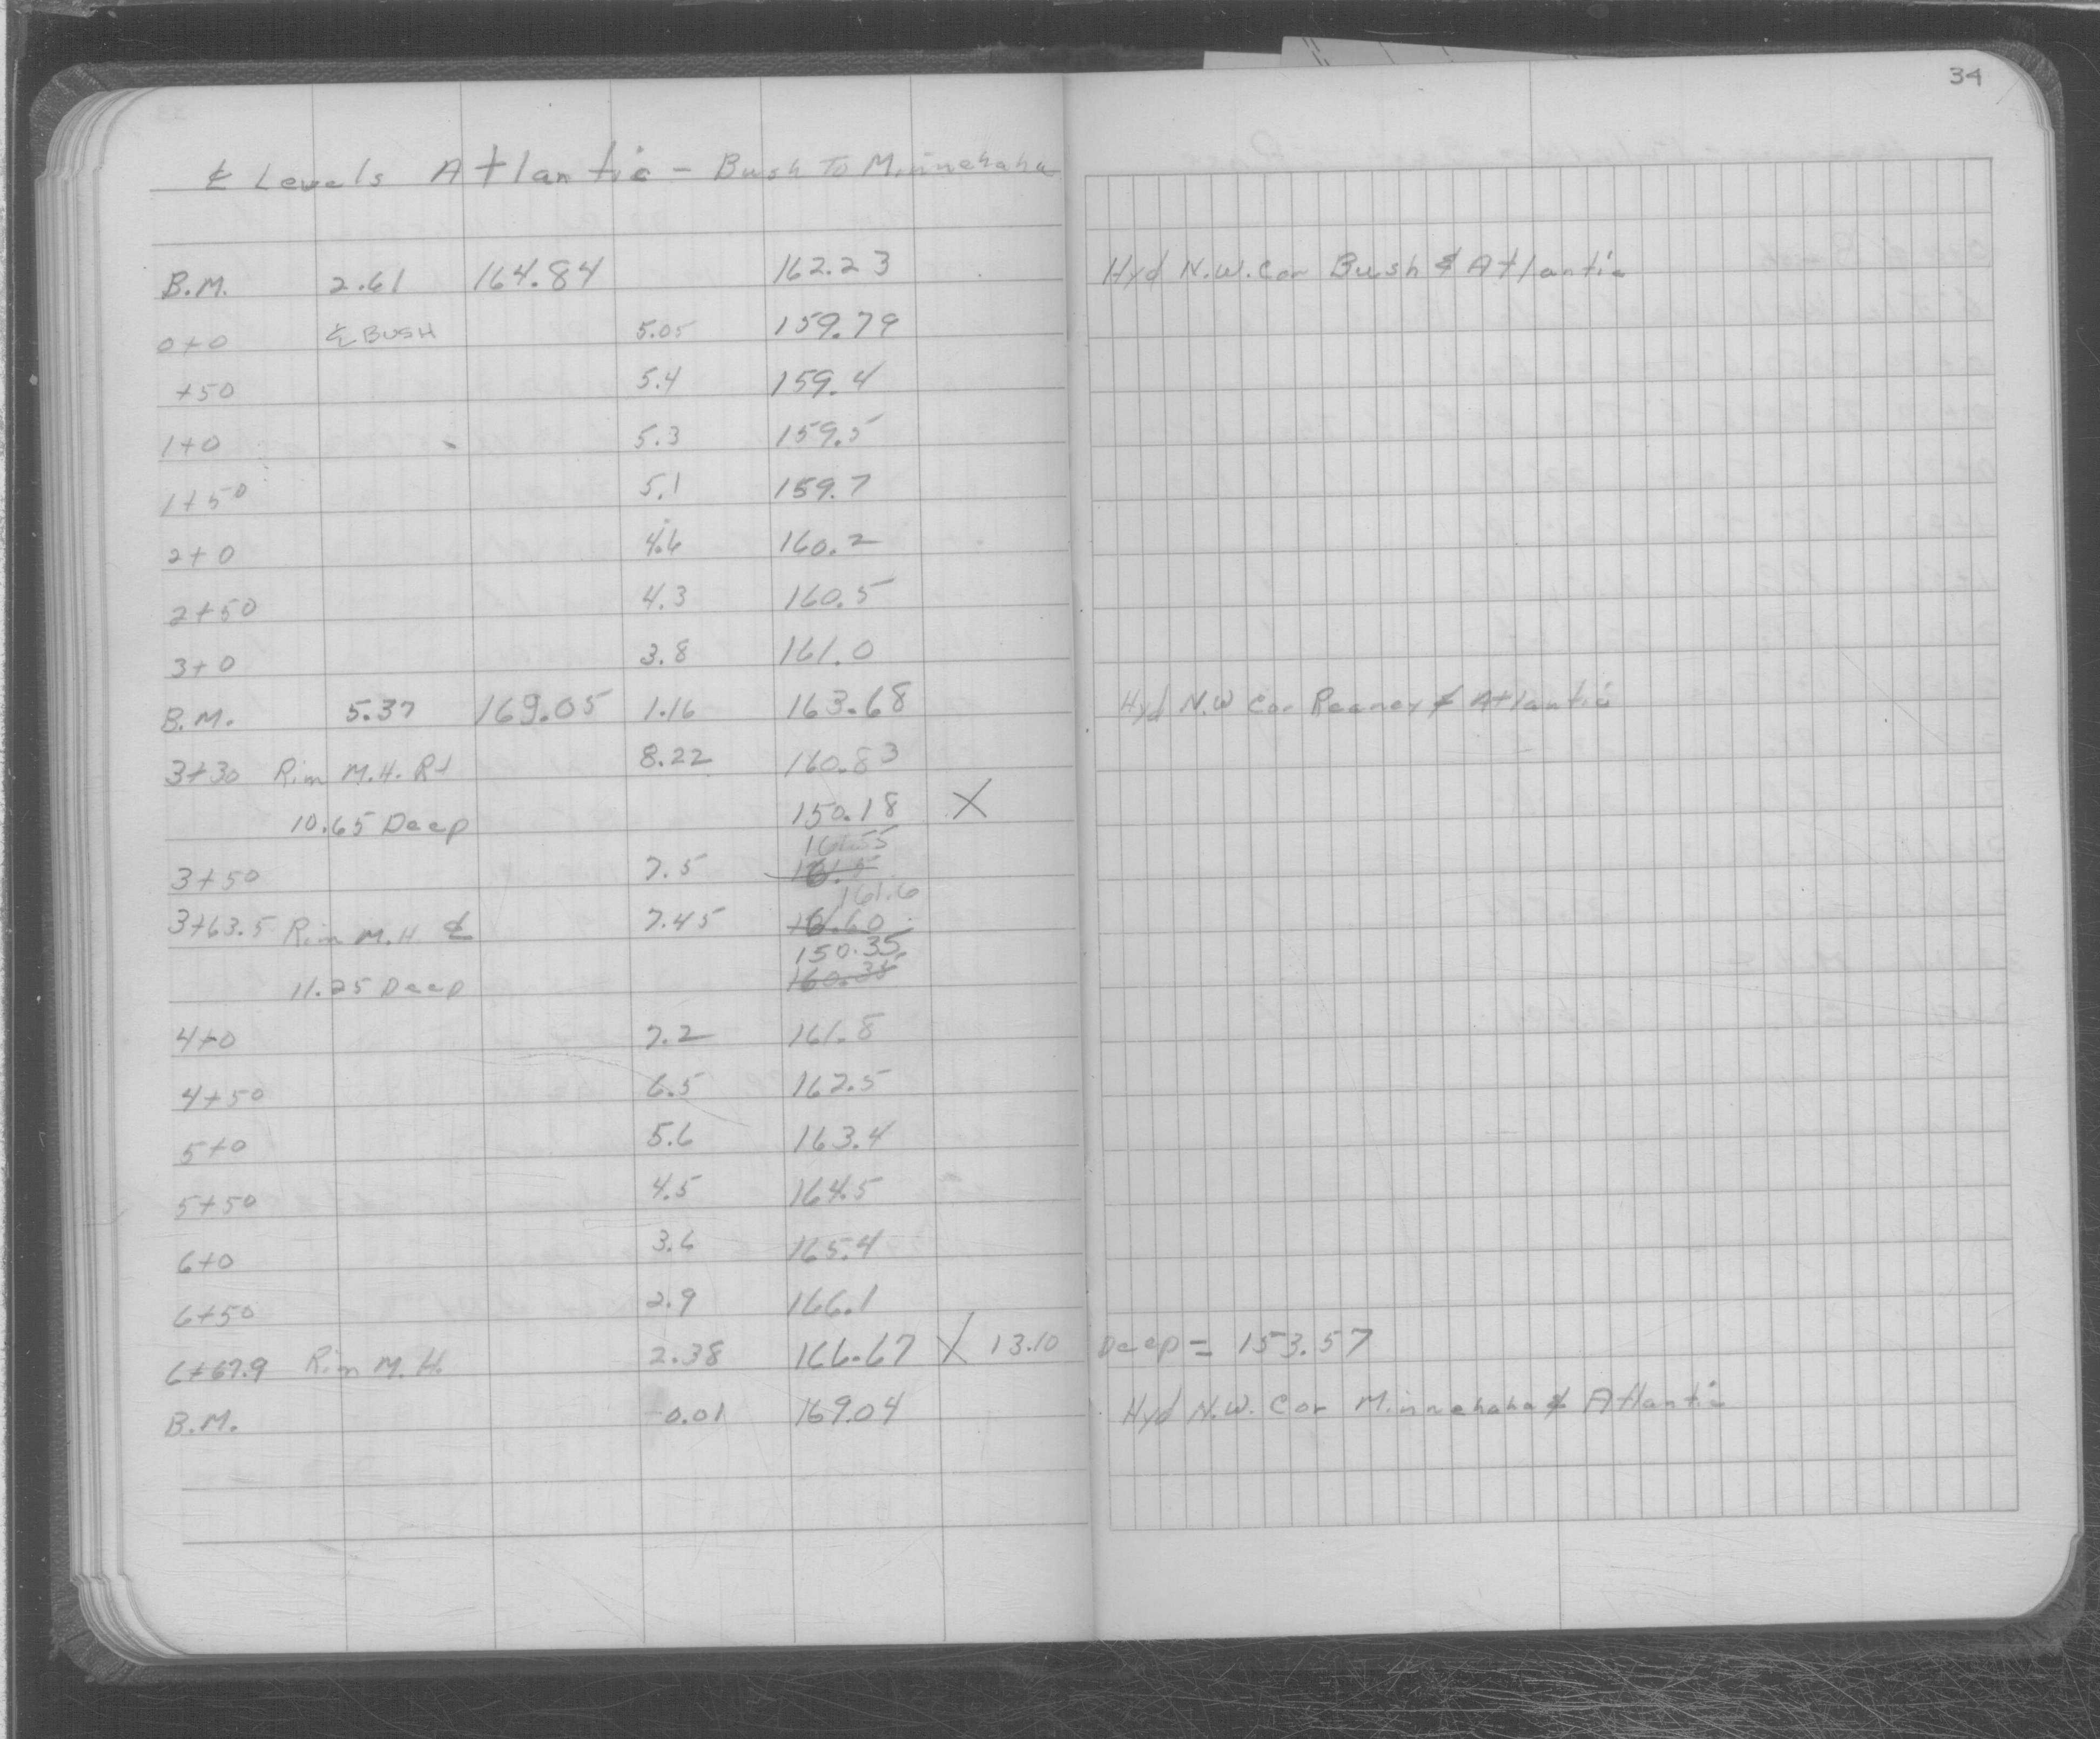 34
℄ Levels Atlantic - Bush To Minnehaha
B.M. 2.61 164.84 162.23 Hyd N.W. Cor Bush & Atlantic
0+0 ℄ BUSH 5.05 159.79
+50 5.4 159.4
1+0 5.3 159.5
1+50 5.1 159.7
2+0 4.6 160.2
2+50 4.3 160.5
3+0 3.8 161.0
B.M. 5.37 169.05 1.16 163.68 Hyd N.W Cor Reaney & Atlantic
3+30 Rim M.H. Rt 8.22 160.83
10.65 Deep 150.18 X
161.55
3+50 7.5 161.5
161.6
3+63.5 Rim M.H. ℄ 7.45 161.60
150.35
11.25 Deep 160.35
4+0 7.2 161.8
4+50 6.5 162.5
5+0 5.6 163.4
5+50 4.5 164.5
6+0 3.6 165.4
6+50 2.9 166.1
6+67.9 Rim M.H. 2.38 166.67 X 13.10 Deep = 153.57
B.M. 0.01 169.04 Hyd N.W. Cor Minnehaha & Atlantic